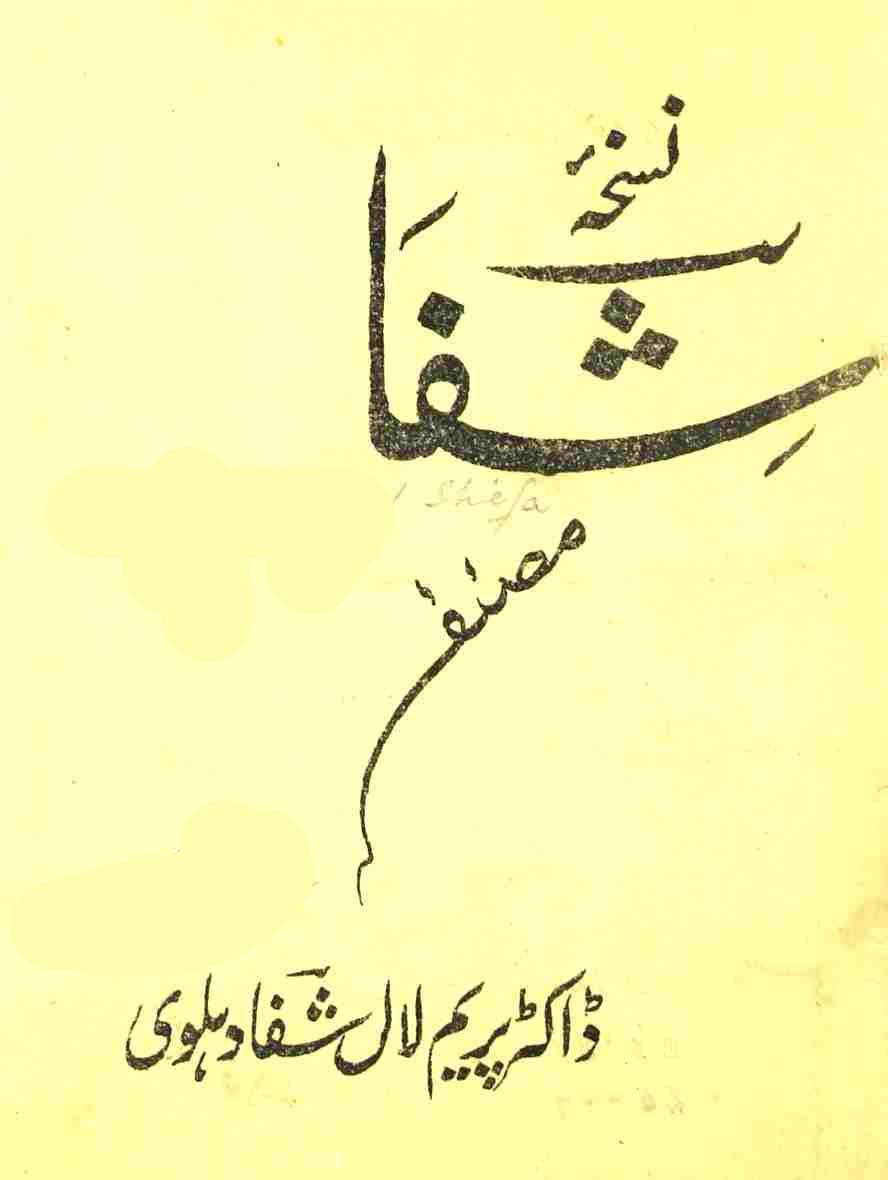 نسخۂ
شِفَا
Shefa
مصنف
ڈاکٹر پریم لال شفا دہلوی